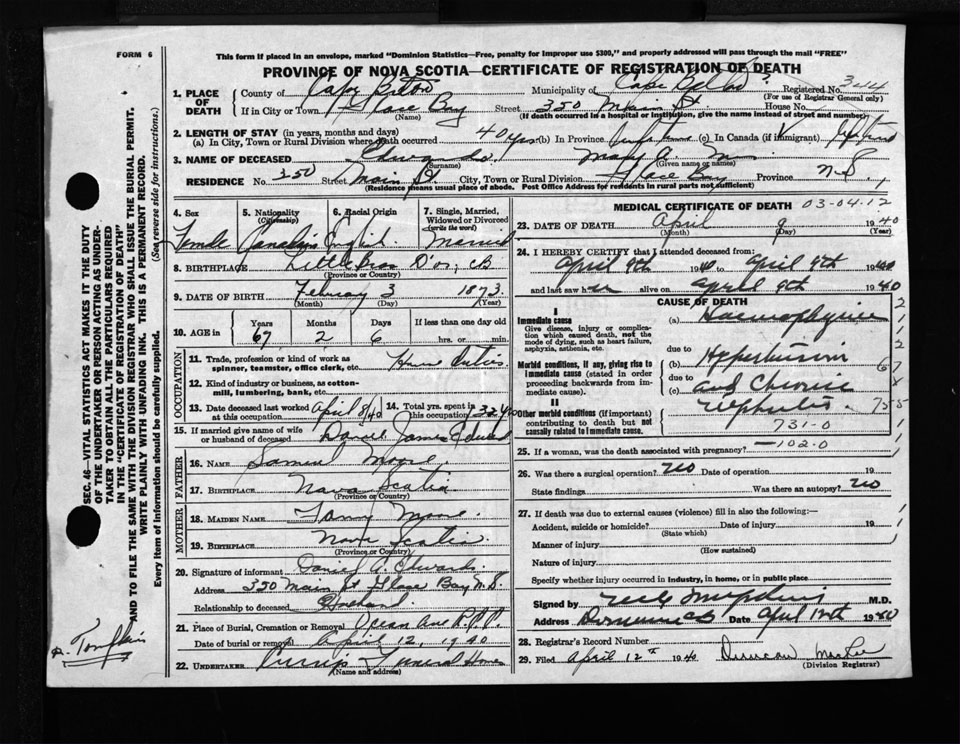 FORM 6
This form if placed in an envelope, marked "Dominion Statistics—Free, penalty for improper use $300," and properly addressed will pass through the mail "FREE"
PROVINCE OF NOVA SCOTIA—CERTIFICATE OF REGISTRATION OF DEATH
1. PLACE OF DEATH
County of Cape Breton Municipality of Cape Breton Registered No. 344
(For use of Registrar General only)
If in City or Town Glace Bay Street 350 Main St. House No.
(Name) (If death occurred in a hospital or institution, give the name instead of street and number)
2. LENGTH OF STAY (in years, months and days)
(a) In City, Town or Rural Division where death occurred 40 yrs (b) In Province (c) In Canada (if immigrant)
3. NAME OF DECEASED Edwards Mary A.
(Surname) (Given name or names)
RESIDENCE No. 350 Street Main St City, Town or Rural Division Glace Bay Province N.S.,
(Residence means usual place of abode. Post Office Address for residents in rural parts not sufficient)
4. Sex 5. Nationality (Citizenship) 6. Racial Origin 7. Single, Married, Widowed or Divorced (write the word)
Female Canadian English. Married
8. BIRTHPLACE Little Bras D'or, CB
(Province or Country)
9. DATE OF BIRTH February 3 1873
(Month) (Day) (Year)
10. AGE in Years Months Days If less than one day old
67 2 6 hrs. or min.
OCCUPATION
11. Trade, profession or kind of work as spinner, teamster, office clerk, etc. House Duties
12. Kind of industry or business, as cotton-mill, lumbering, bank, etc.
13. Date deceased last worked at this occupation April 8/40 14. Total yrs. spent in this occupation
15. If married give name of wife or husband of deceased Daniel James Edward
FATHER
16. NAME Samuel Moore
17. BIRTHPLACE Nova Scotia
(Province or Country)
MOTHER
18. MAIDEN NAME Moore
19. BIRTHPLACE Nova Scotia.
(Province or Country)
20. Signature of informant Daniel A. Edwards
Address 350 Main St Glace Bay, N.S
Relationship to deceased Husband
21. Place of Burial, Cremation or Removal Ocean Ave
Date of burial or removal April 12, 1940
22. UNDERTAKER Funeral Home
(Name and address)
MEDICAL CERTIFICATE OF DEATH 03-04-12
23. DATE OF DEATH April 9 1940
(Month) (Day) (Year)
24. I HEREBY CERTIFY that I attended deceased from:
April 9th 1940 to April 9th 1940
and last saw her alive on April 9th 1940
CAUSE OF DEATH
I
Immediate cause
Give disease, injury or complication which caused death, not the mode of dying, such as heart failure, asphyxia, asthenia, etc.
(a)
due to Hypertension
Morbid conditions, if any, giving rise to immediate cause (stated in order proceeding backwards from immediate cause).
(b)
due to and Chronic
(c)
Nephritis.
II
Other morbid conditions (if important) contributing to death but not causally related to immediate cause.
731-0
-102.0
25. If a woman, was the death associated with pregnancy?
26. Was there a surgical operation? no Date of operation 19
State findings Was there an autopsy? no
27. If death was due to external causes (violence) fill in also the following:—
Accident, suicide or homicide? Date of injury 19
(State which)
Manner of injury
(How sustained)
Nature of injury
Specify whether injury occurred in industry, in home, or in public place
Signed by M.D.
Address Dominion CB Date April 12th 1940
28. Registrar's Record Number
29. Filed April 12th 1940 Duncan
(Division Registrar)
SEC. 46—VITAL STATISTICS ACT MAKES IT THE DUTY
OF THE UNDERTAKER OR PERSON ACTING AS UNDER-
TAKER TO OBTAIN ALL THE PARTICULARS REQUIRED
IN THE "CERTIFICATE OF REGISTRATION OF DEATH"
AND TO FILE THE SAME WITH THE DIVISION REGISTRAR WHO SHALL ISSUE THE BURIAL PERMIT.
WRITE PLAINLY WITH UNFADING INK. THIS IS A PERMANENT RECORD.
Every item of information should be carefully supplied. (See reverse side for instructions.)